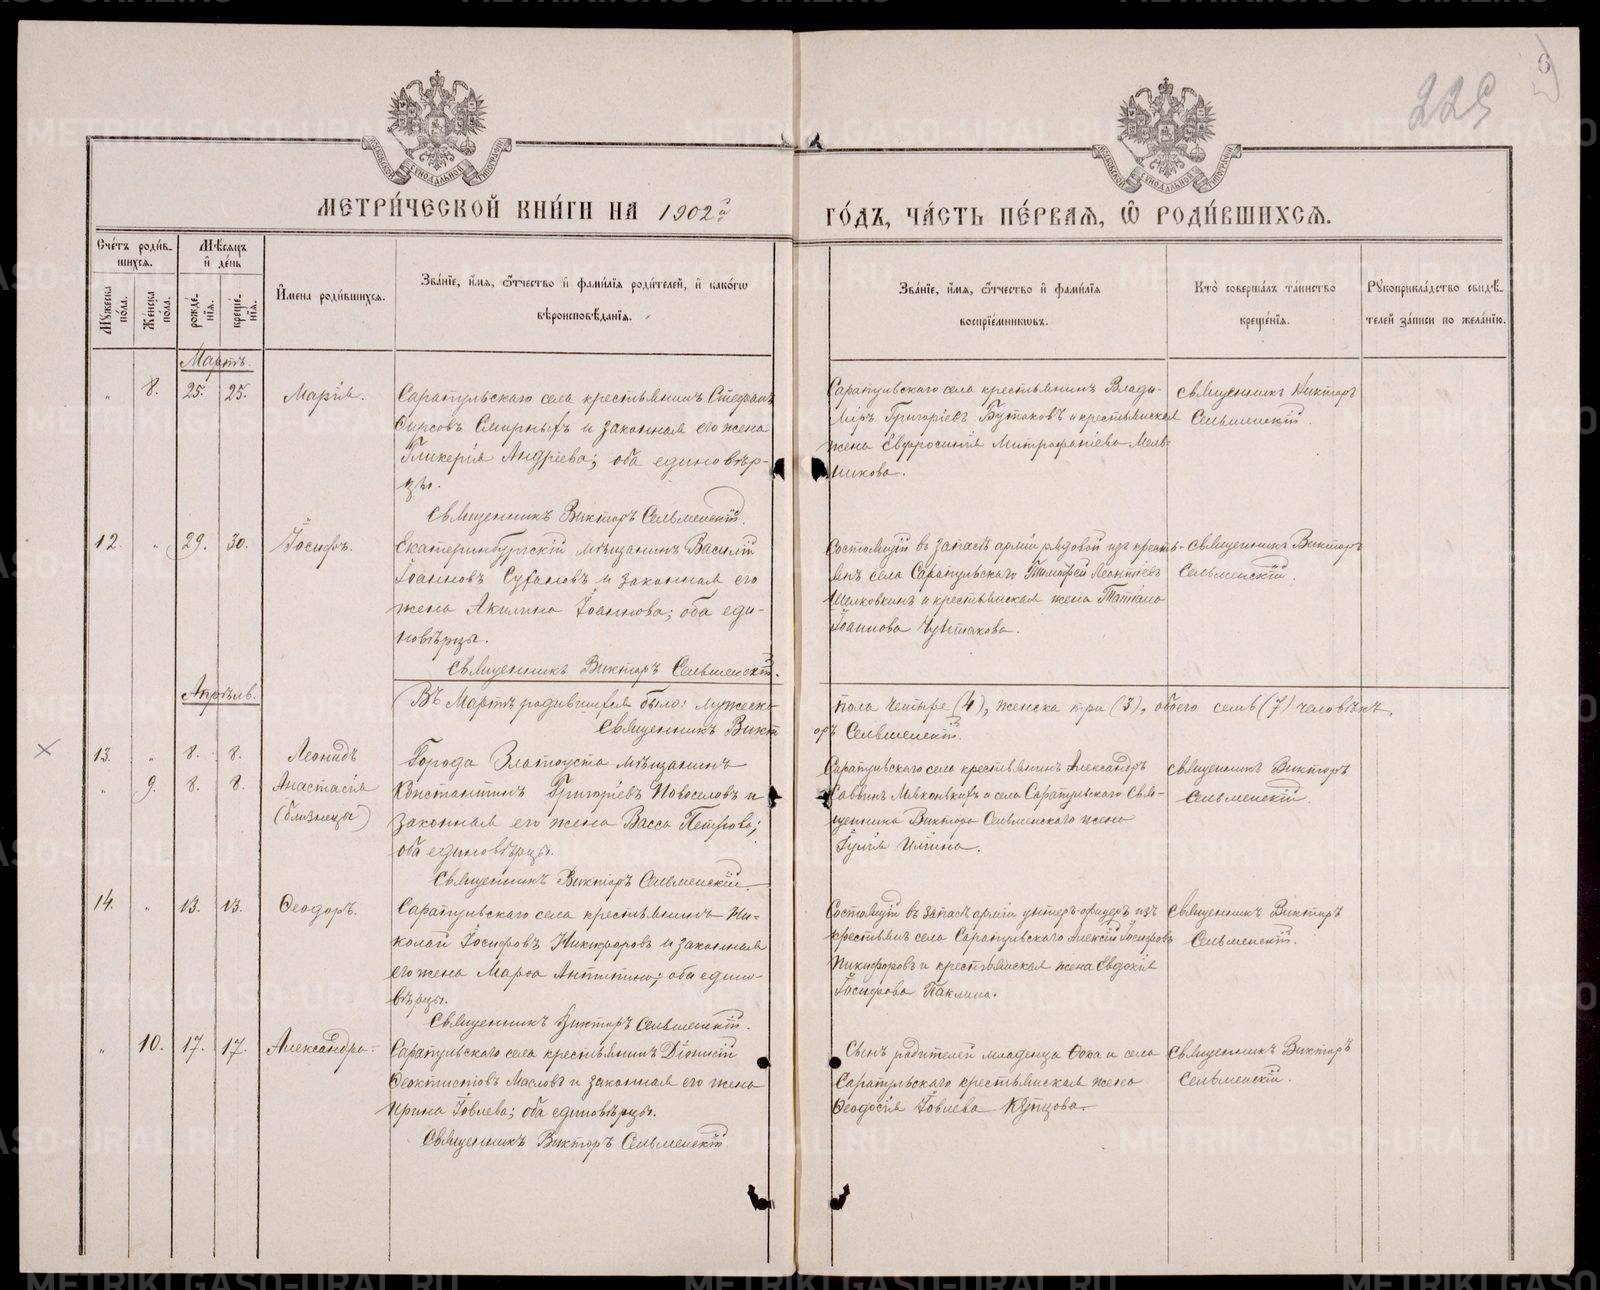 225
МОСКОВСКОЙ СѴНОДАЛЬНОЙ ТИПОГРАФІИ
МОСКОВСКОЙ СѴНОДАЛЬНОЙ ТИПОГРАФІИ
МЕТРИ́ЧЕСКОЙ КНИ́ГИ НА 1902й
ГО́ДЪ, ЧА́СТЬ ПЕ́РВАѦ, Ѡ҆ РОДИ́ВШИХСѦ.
Сче́тъ роди́в-
шихсѧ.
Мꙋ́жеска по́ла.
Же́нска по́ла.
Мѣ́сѧцъ
и҆ де́нь
рожде́нїѧ.
креще́нїѧ.
И҆мена роди́вшихсѧ.
Зва́нїе, и҆́мѧ, ѻ҆́тчество и҆ фами́лїѧ роди́телей, и҆ како́гѡ
вѣроисповѣ́данїѧ.
Зва́нїе, и҆́мѧ, ѻ҆́тчество и҆ фами́лїѧ
воспрїе́мникѡвъ.
Кто̀ соверша́лъ та́инство
креще́нїѧ.
Рꙋкоприкла́дство свидѣ́-
телей за́писи по жела́нїю.
Мартъ.
" 8. 25. 25. Марія.
Сарапульскаго села крестьянинъ Стефанъ
Фирсовъ Смирныхъ и законная его жена
Гликерія Андреева; оба единовѣр-
цы.
Священникъ Викторъ Сельменскій.
Сарапульскаго села крестьянинъ Влади-
міръ Григоріевъ Бутаковъ и крестьянская
жена Евфросинія Митрофаніева Мель-
никова.
Священникъ Викторъ
Сельменскій.
12. " 29. 30. Іосифъ.
Екатеринбургскій мѣщанинъ Василій
Іоанновъ Сухановъ и законная его
жена Акилина Іоаннова; оба еди-
новѣрцы.
Священникъ Викторъ Сельменскій.
Состоящій въ запасѣ арміи рядовой изъ кресть-
янъ села Сарапульскаго Тимофей Леонтіевъ
Шелковкинъ и крестьянская жена Татіана
Іоаннова
Священникъ Викторъ
Сельменскій.
Апрѣль.
Въ Мартѣ родившихся было: мужеска пола четыре (4), женска три (3), обоего семь (7) человѣкъ.
Священникъ Викторъ Сельменскій.
13. " 8. 8. Леонидъ
" 9. 8. 8. Анастасія
(близнецы)
Города Златоуста мѣщанинъ
Константинъ Григоріевъ Новоселовъ и
законная его жена Васса Петрова;
оба единовѣрцы.
Священникъ Викторъ Сельменскій.
Сарапульскаго села крестьянинъ Александръ
Саввинъ и села Сарапульскаго Свя-
щенника Виктора Сельменскаго жена
Іулія Ильина.
Священникъ Викторъ
Сельменскій.
14. " 13. 13. Ѳеодоръ.
Сарапульскаго села крестьянинъ Ни-
колай Іосифовъ Никифоровъ и законная
его жена Марѳа Антипина; оба едино-
вѣрцы.
Священникъ Викторъ Сельменскій.
Состоящій въ запасѣ арміи унтеръ-офицеръ изъ
крестьянъ села Сарапульскаго Алексій Іосифовъ
Никифоровъ и крестьянская жена Евдокія
Іосифова Паклина.
Священникъ Викторъ
Сельменскій.
" 10. 17. 17. Александра.
Сарапульскаго села крестьянинъ Діонисій
Ѳеоктистовъ Масловъ и законная его жена
Ирина Іовлева; оба единовѣрцы.
Священникъ Викторъ Сельменскій.
Сынъ родителей младенца Ѳока и села
Сарапульскаго крестьянская жена
Ѳеодосія Іовлева Купцова.
Священникъ Викторъ
Сельменскій.
METRIKI.GASO-URAL.RU